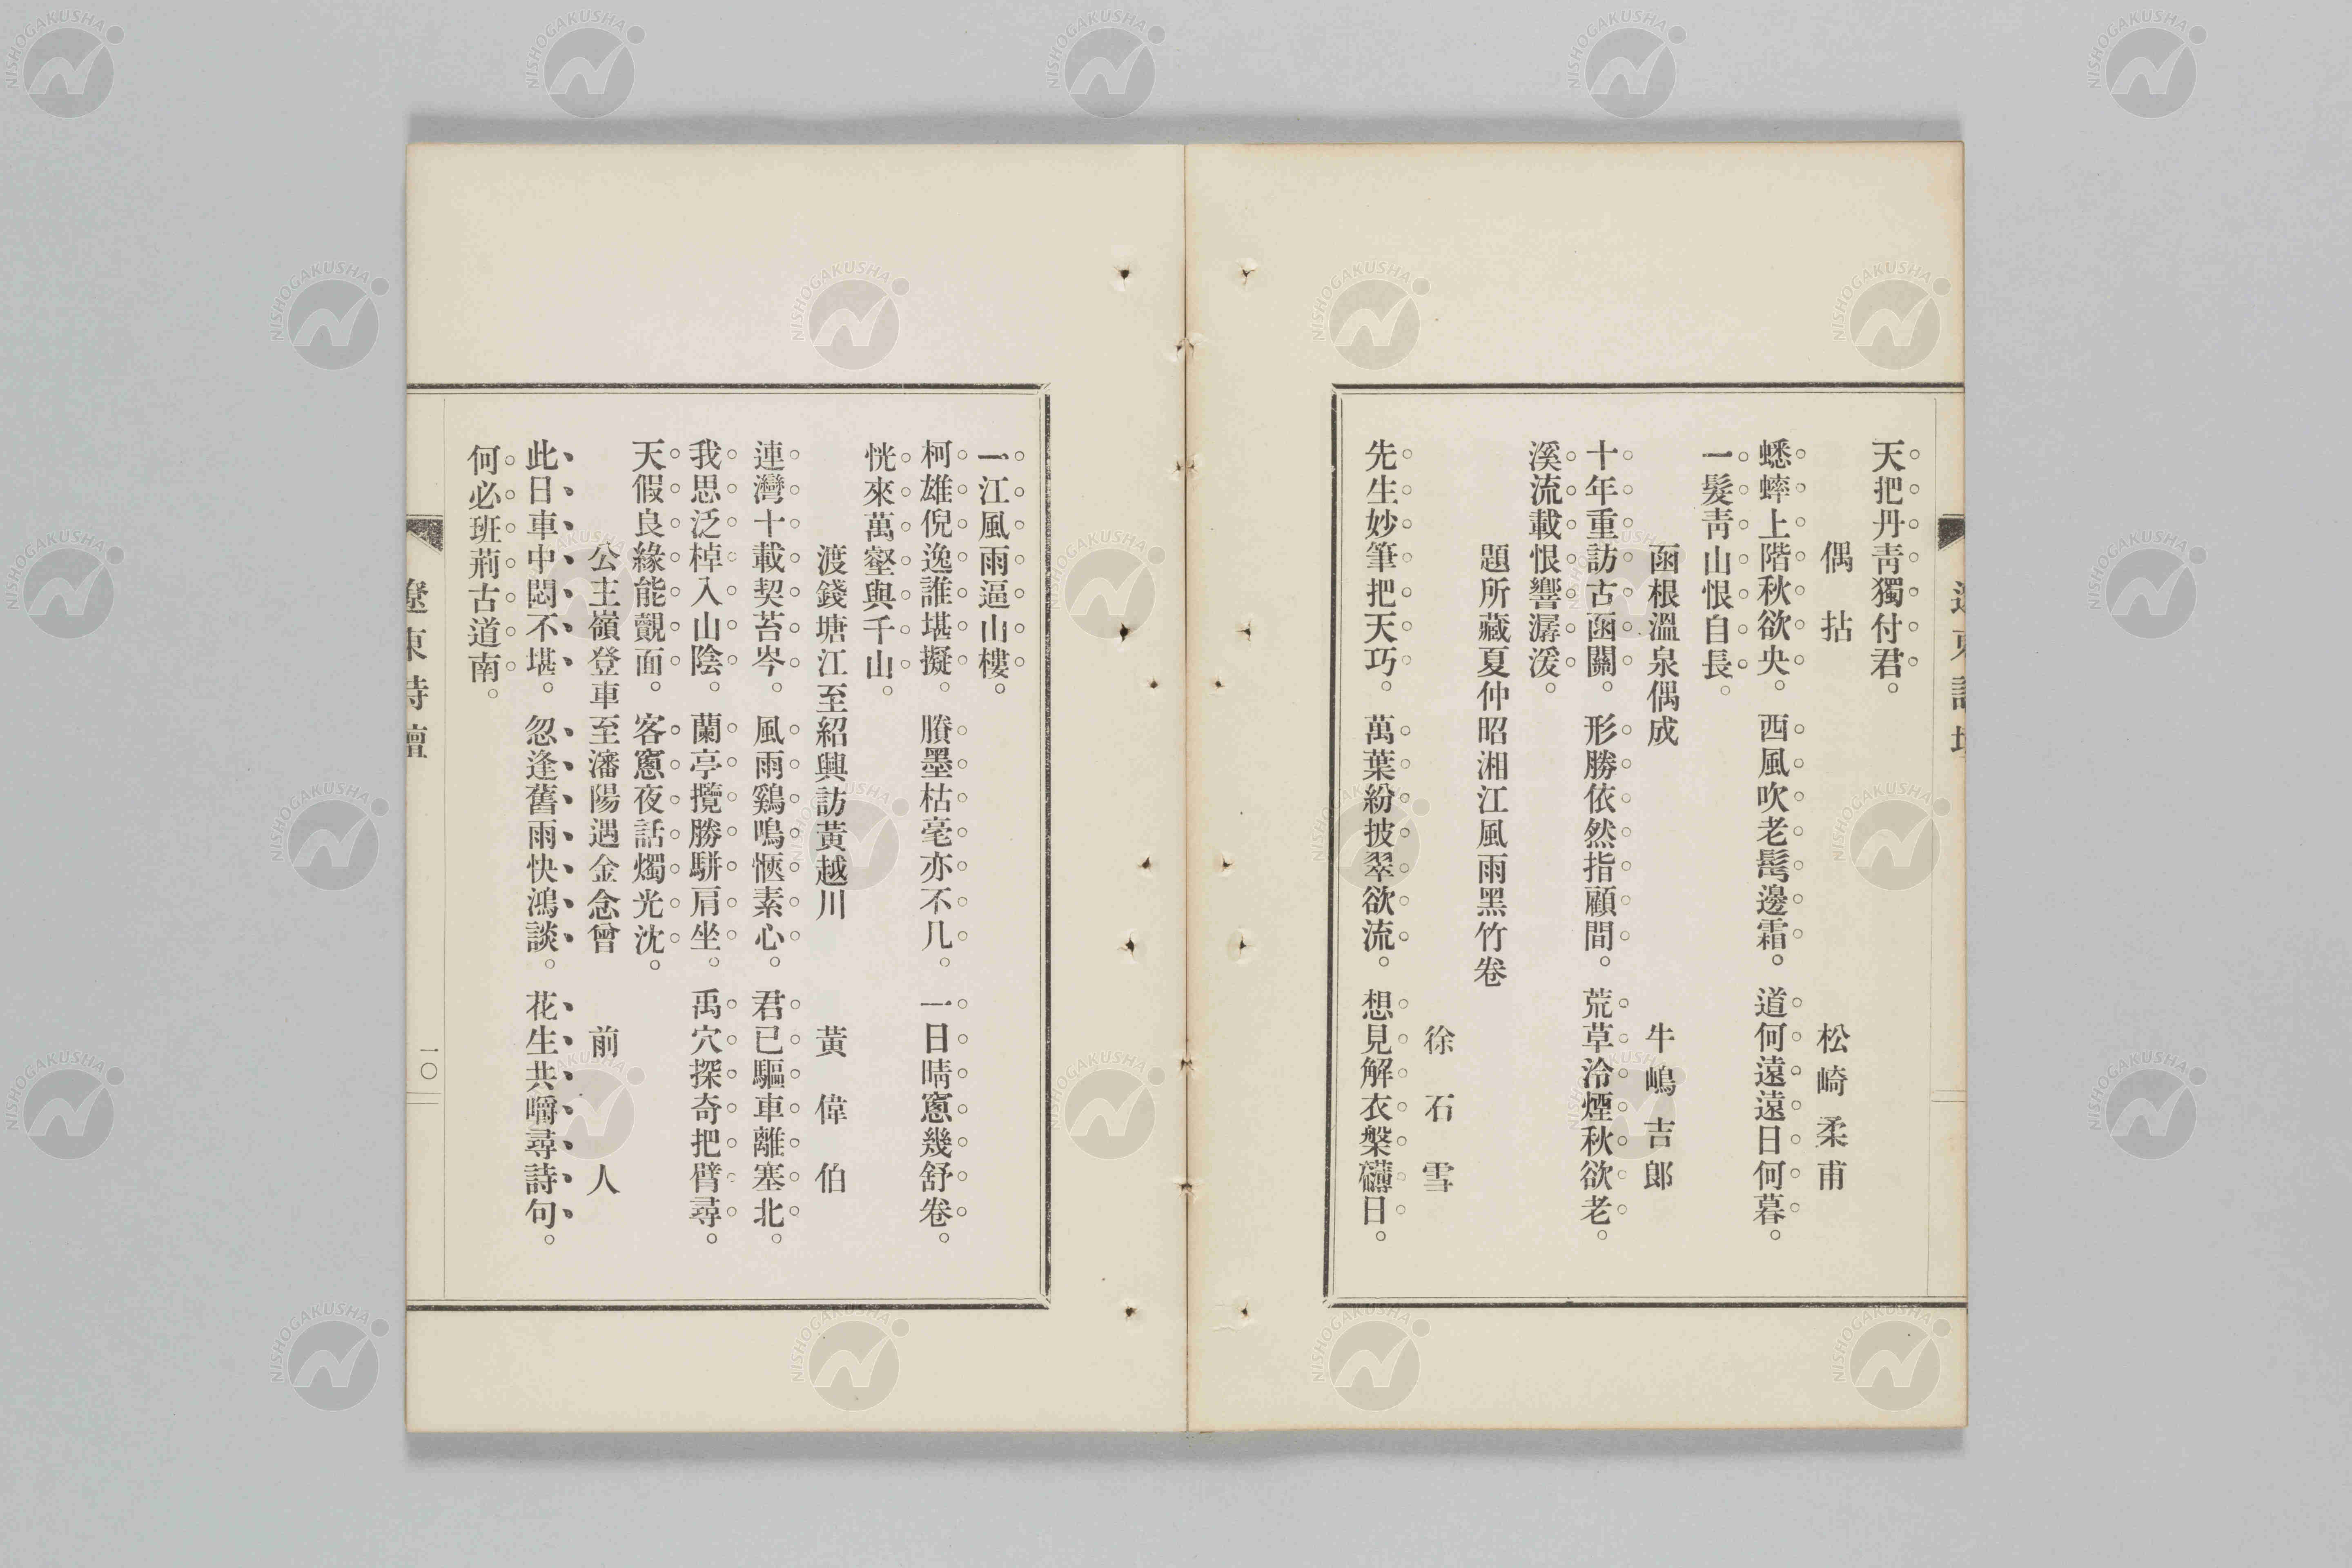 天把丹靑獨付君。
偶拈　松崎柔甫
蟋蟀上階秋欲央。西風吹老髩邊霜。道何遠遠日何暮。
一髮靑山恨自長。
函根溫泉偶成　牛嶋吉郎
十年重訪古函關。形勝依然指顧間。荒草冷煙秋欲老。
溪流載恨響潺湲。
題所藏夏仲昭湘江風雨黑竹卷
徐石雪
先生妙筆把天巧。萬葉紛披翠欲流。想見解衣槃礴日。
一江風雨逼山樓。
柯雄倪逸誰堪擬。賸墨枯毫亦不凡。一日晴窻幾舒卷。
恍來萬壑與千山。
渡錢塘江至紹興訪黃越川　黃偉伯
連灣十載契苔岑。風雨鷄鳴愜素心。君已驅車離塞北。
我思泛棹入山陰。蘭亭攬勝駢肩坐。禹穴探奇把臂尋。
天假良緣能覿面。客窻夜話燭光沈。
公主嶺登車至瀋陽遇金念曾　前人
此日車中悶不堪。忽逢舊雨快鴻談。花生共嚼尋詩句。
何必班荊古道南。
遼東詩壇
一〇
NISHOGAKUSHA